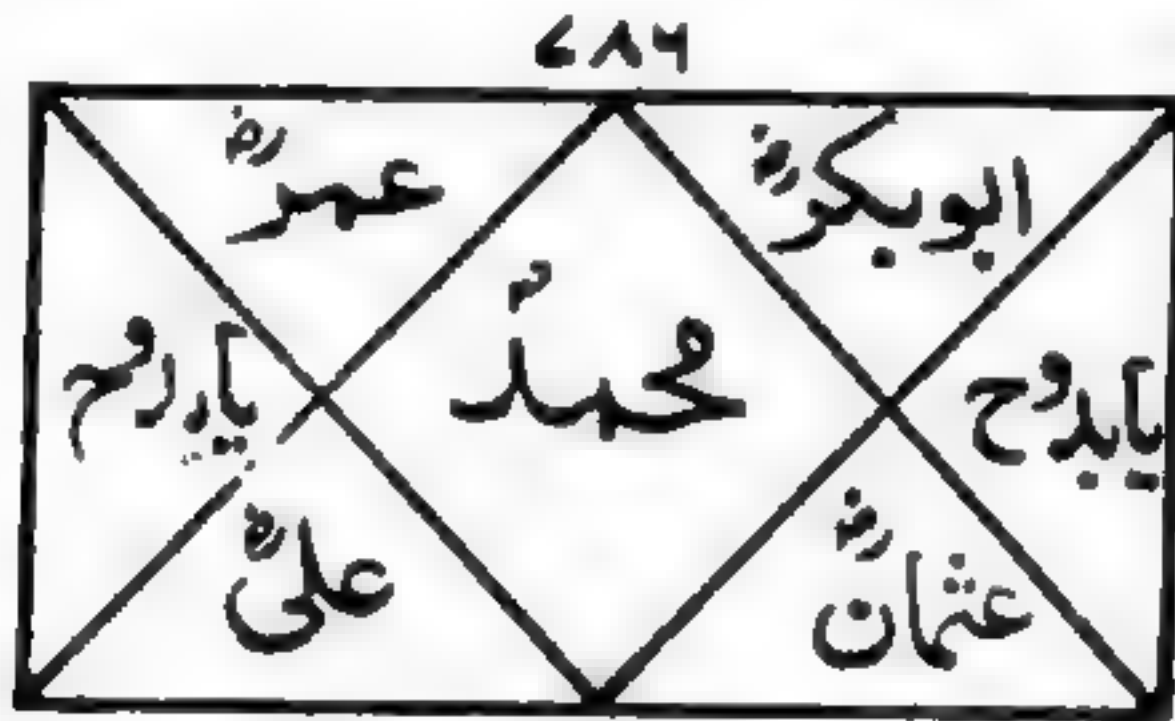 ۷۸۶
ابوبکرؓ
عمرؓ
یابدوح
محمدؐ
عثمانؓ
علیؓ